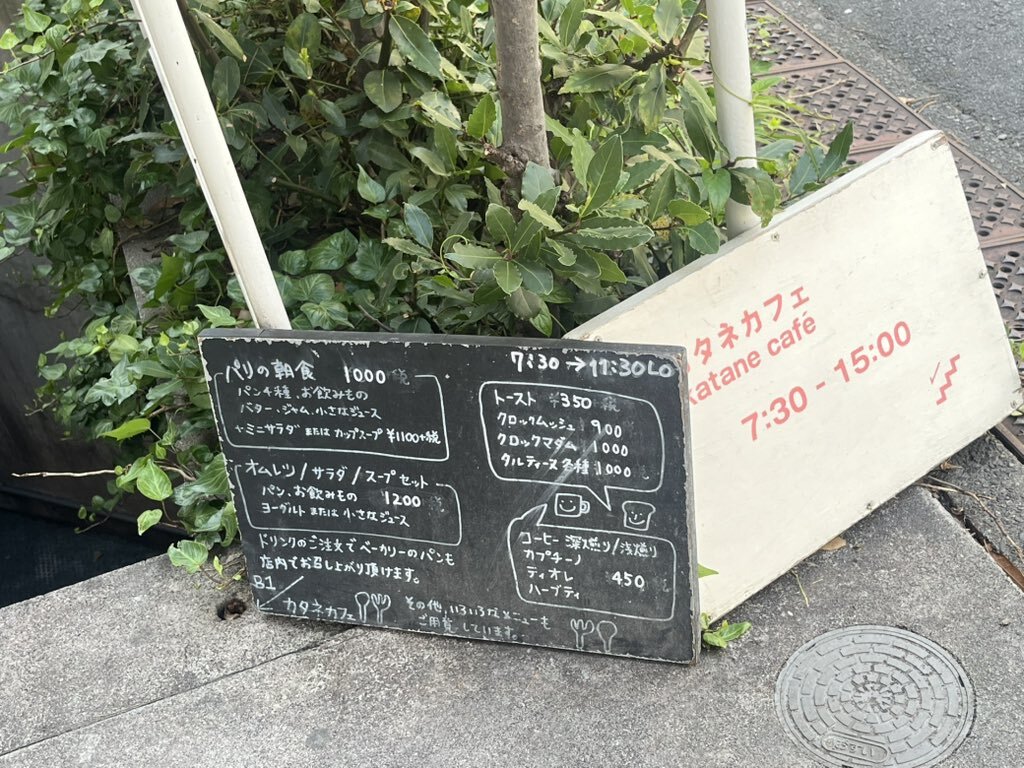 パリの朝食 1000
パン4種、お飲みもの
バター、ジャム、小さなジュース
+ミニサラダ または カップスープ ¥1100+税
オムレツ/サラダ/スープセット
パン、お飲みもの 1200
ヨーグルト または 小さなジュース
ドリンクのご注文で ベーカリーのパンも
店内でお召し上がり頂けます。
B1
カタネカフェ
7:30→17:30LO
トースト ¥350
クロックムッシュ 900
クロックマダム 1000
タルティーヌ各種 1000
コーヒー 深煎り/浅煎り
カプチーノ
ティオレ 450
ハーブティ
その他、いろいろなメニューも
ご用意しています。
タネカフェ
katane café
7:30 - 15:00